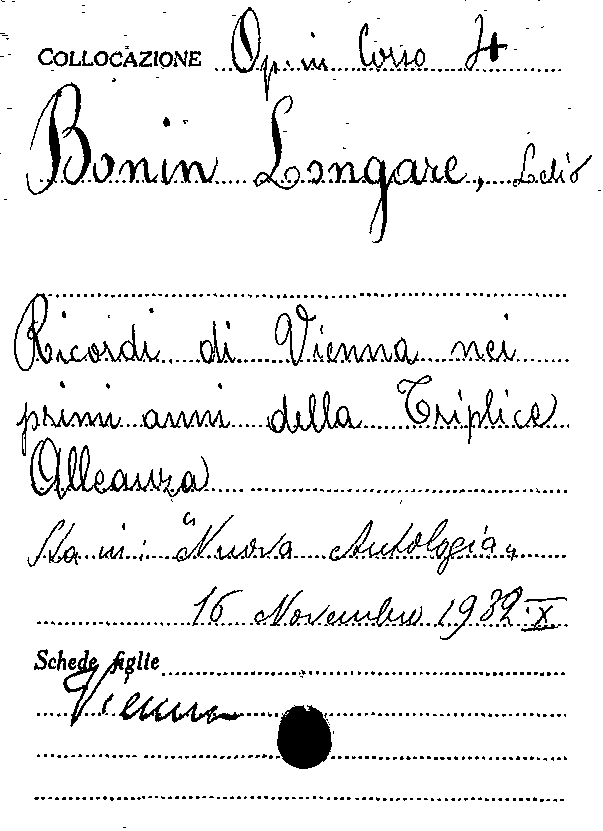 COLLOCAZIONE Op. in Corso 4
Bonin Longare, Lelio
Ricordi di Vienna nei
primi anni della Triplice
Alleanza
Sta in: "Nuova Antologia"
16 Novembre 1932 X
Schede figlie
Vienna